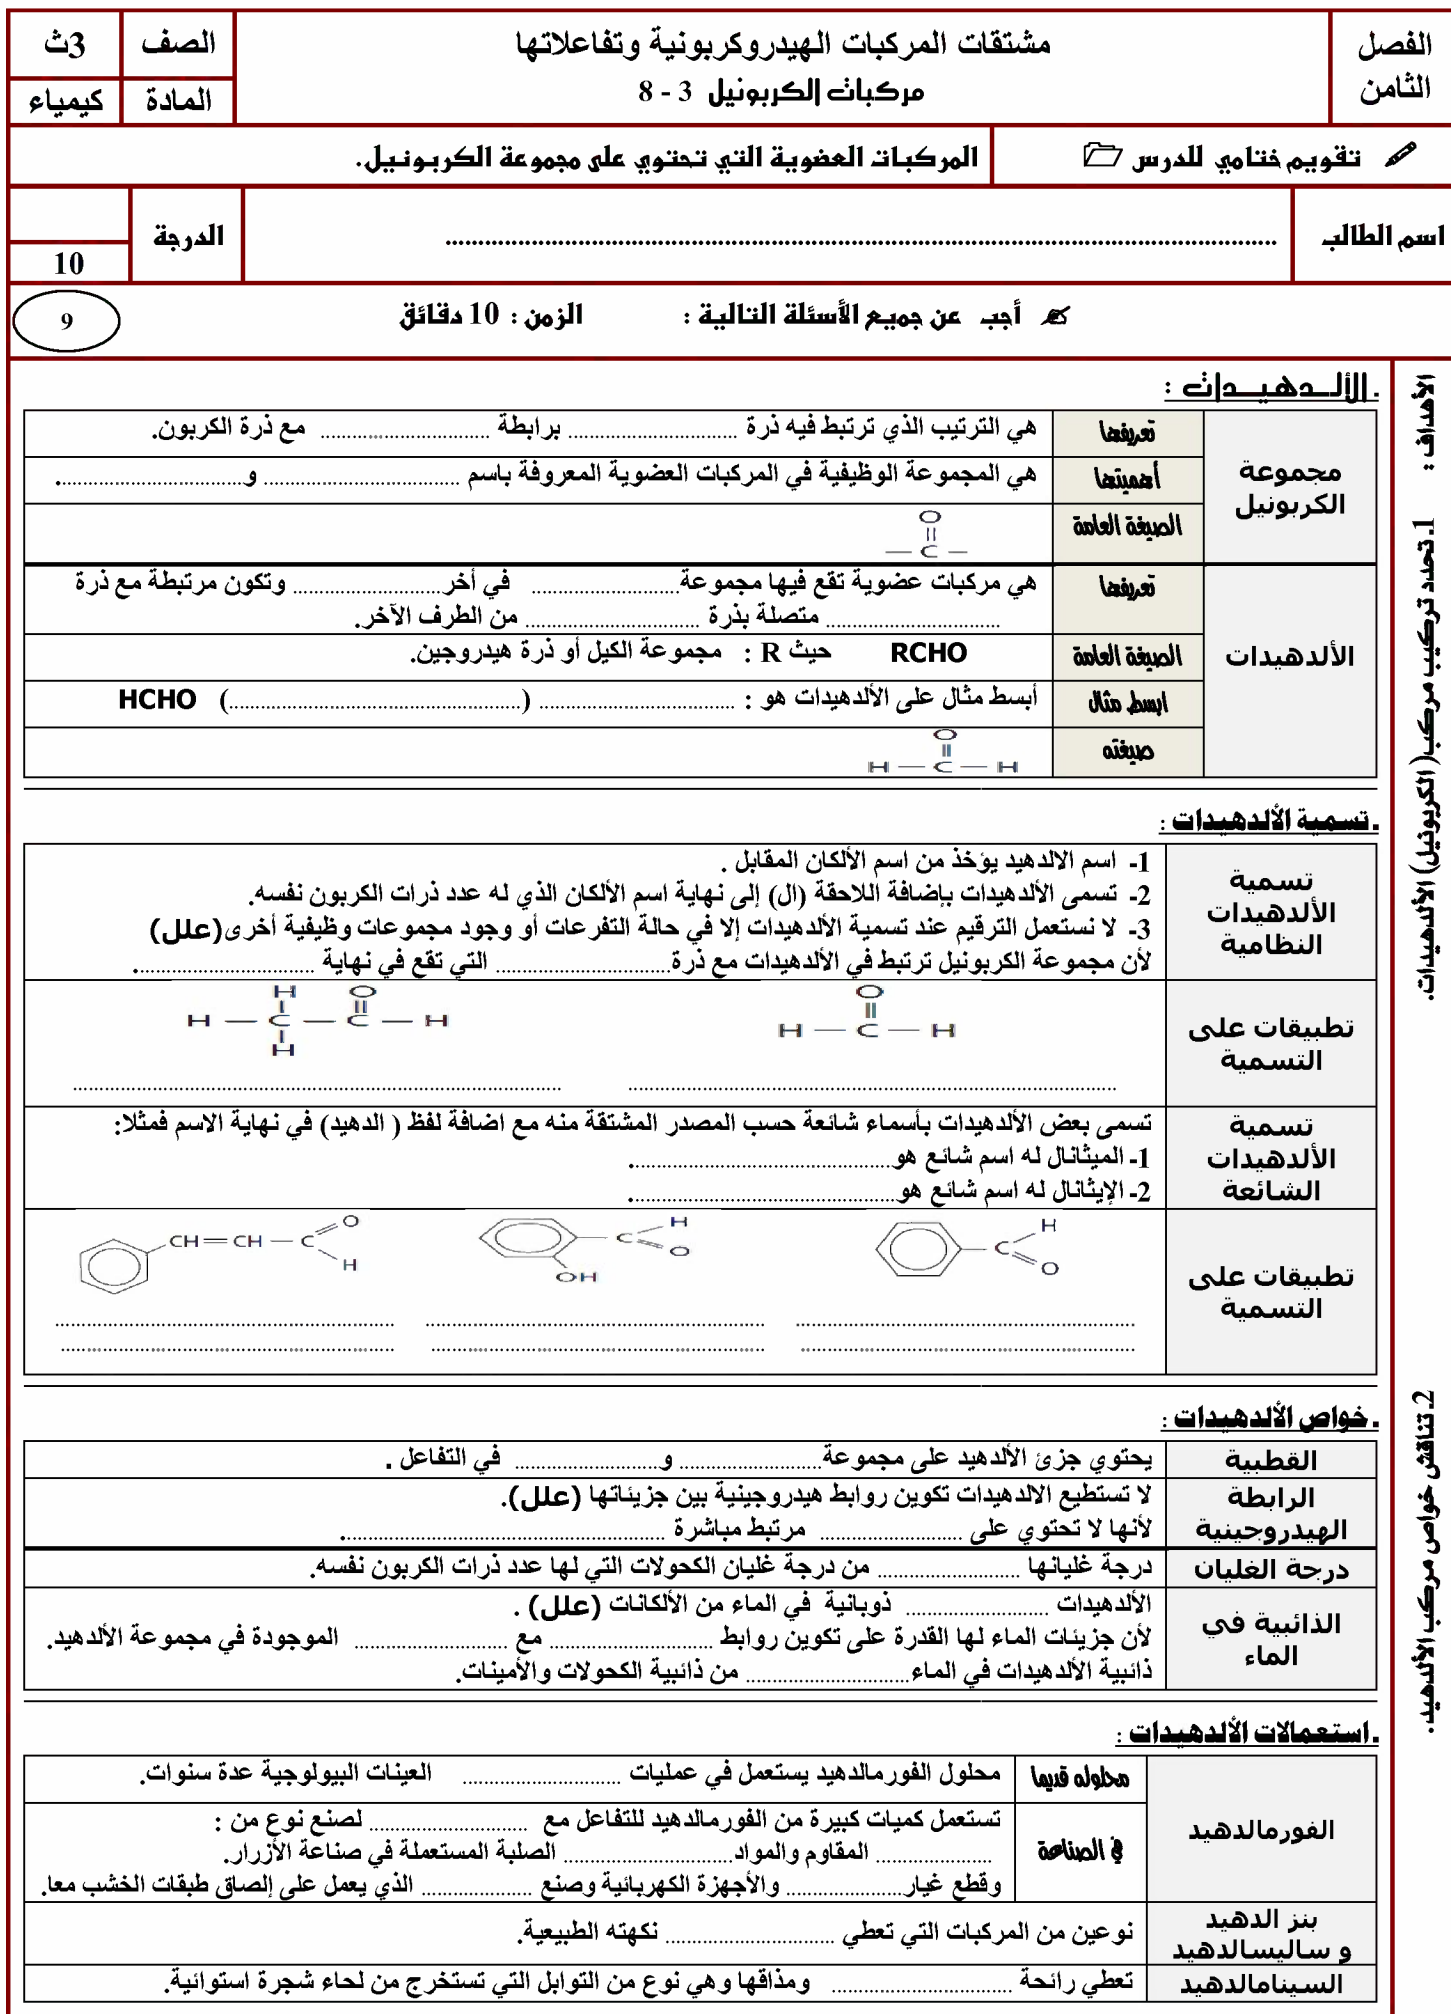 الفصل الثامن
مشتقات المركبات الهيدروكربونية وتفاعلاتها
مركبات الكربونيل 3 - 8
الصف
3ث
المادة
كيمياء
تقويم ختامي للدرس
المركبات العضوية التي تحتوي على مجموعة الكربونيل.
اسم الطالب
................................................
الدرجة
10
أجب عن جميع الأسئلة التالية : الزمن : 10 دقائق
9
الأهداف :
1. تحدد تركيب مركب( الكربونيل) الألدهيدات.
2. تناقش خواص مركب الألدهيد.
. الألـــدهـيـــدات :
مجموعة الكربونيل
تعريفها
هي الترتيب الذي ترتبط فيه ذرة .................. برابطة .................. مع ذرة الكربون.
أهميتها
هي المجموعة الوظيفية في المركبات العضوية المعروفة باسم .................. و...................
الصيغة العامة
O
— C —
الألدهيدات
تعريفها
هي مركبات عضوية تقع فيها مجموعة.................. في أخر.................. وتكون مرتبطة مع ذرة
.................. متصلة بذرة .................. من الطرف الآخر.
الصيغة العامة
RCHO حيث R : مجموعة الكيل أو ذرة هيدروجين.
ابسط مثال
أبسط مثال على الألدهيدات هو : .................. (..................) HCHO
صيغته
O
H — C — H
. تسمية الألدهيدات :
تسمية الألدهيدات النظامية
1- اسم الالدهيد يؤخذ من اسم الألكان المقابل .
2- تسمى الألدهيدات بإضافة اللاحقة (ال) إلى نهاية اسم الألكان الذي له عدد ذرات الكربون نفسه.
3- لا نستعمل الترقيم عند تسمية الألدهيدات إلا في حالة التفرعات أو وجود مجموعات وظيفية أخرى(علل)
لأن مجموعة الكربونيل ترتبط في الألدهيدات مع ذرة.................. التي تقع في نهاية ...................
تطبيقات على التسمية
O
H — C — H
H O
H — C — C — H
H
.................. ..................
تسمية الألدهيدات الشائعة
تسمى بعض الألدهيدات بأسماء شائعة حسب المصدر المشتقة منه مع اضافة لفظ ( الدهيد) في نهاية الاسم فمثلا:
1- الميثانال له اسم شائع هو...................
2- الإيثانال له اسم شائع هو...................
تطبيقات على التسمية
C H O
C H O OH
CH=CH — C O H
.................. .................. ..................
.................. .................. ..................
. خواص الألدهيدات :
القطبية
يحتوي جزئ الألدهيد على مجموعة.................. و.................. في التفاعل .
الرابطة الهيدروجينية
لا تستطيع الالدهيدات تكوين روابط هيدروجينية بين جزيئاتها (علل).
لأنها لا تحتوي على .................. مرتبط مباشرة ...................
درجة الغليان
درجة غليانها .................. من درجة غليان الكحولات التي لها عدد ذرات الكربون نفسه.
الذائبية في الماء
الألدهيدات .................. ذوبانية في الماء من الألكانات (علل) .
لأن جزيئات الماء لها القدرة على تكوين روابط .................. مع .................. الموجودة في مجموعة الألدهيد.
ذائبية الألدهيدات في الماء.................. من ذائبية الكحولات والأمينات.
. استعمالات الألدهيدات :
الفورمالدهيد
محلوله قديما
محلول الفورمالدهيد يستعمل في عمليات .................. العينات البيولوجية عدة سنوات.
في الصناعة
تستعمل كميات كبيرة من الفورمالدهيد للتفاعل مع .................. لصنع نوع من :
.................. المقاوم والمواد.................. الصلبة المستعملة في صناعة الأزرار.
وقطع غيار.................. والأجهزة الكهربائية وصنع .................. الذي يعمل على إلصاق طبقات الخشب معا.
بنز الدهيد
و ساليسالدهيد
نوعين من المركبات التي تعطي .................. نكهته الطبيعية.
السينامالدهيد
تعطي رائحة .................. ومذاقها وهي نوع من التوابل التي تستخرج من لحاء شجرة استوائية.